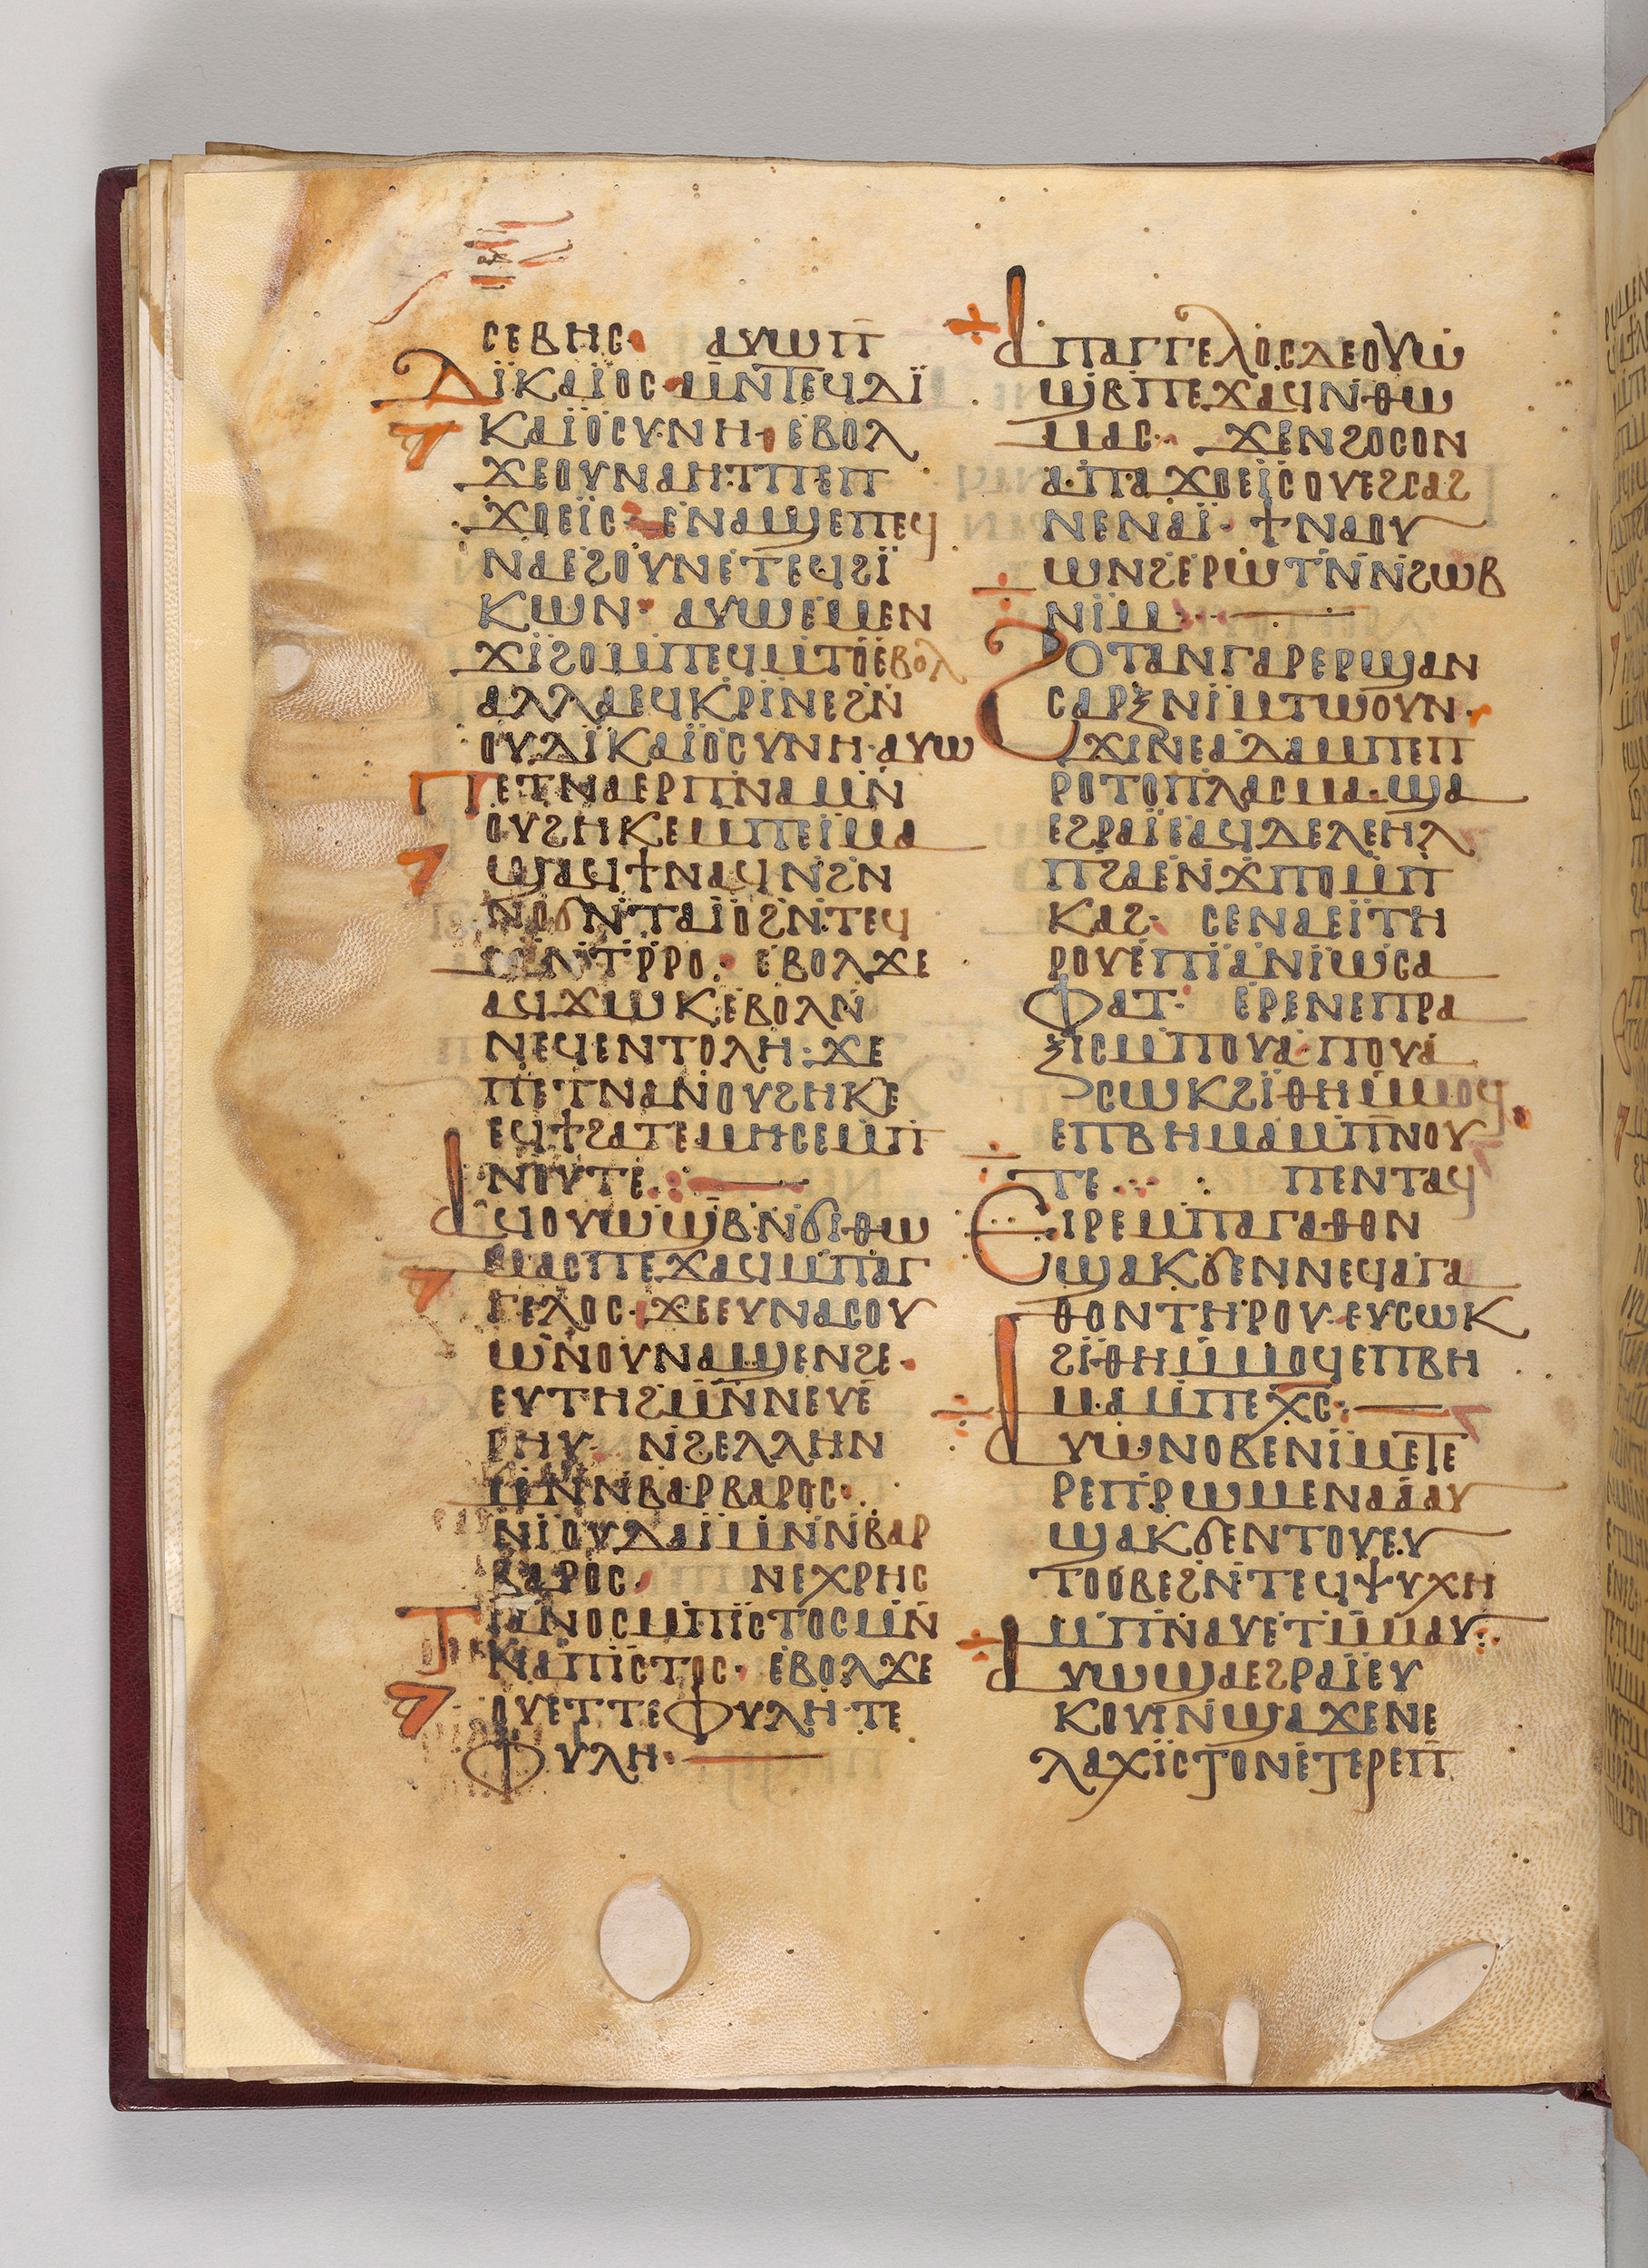 ⲥⲉⲃⲏⲥ· ⲁⲩⲱⲡ̄
ⲇⲓ̈ⲕⲁⲓ̈ⲟⲥ·ⲙⲛ̄ⲧⲉϥⲇⲓ̈
ⲕⲁⲓ̈ⲟⲥⲩⲛⲏ· ⲉⲃⲟⲗ
ϫⲉⲟⲩⲛⲁⲏⲧⲡⲉⲡ
ϫⲟⲉⲓ̈ⲥ· ⲉⲛⲁϣⲉⲡⲉϥ
ⲛⲁⲉϩⲟⲩⲛⲉⲧⲉϥϩⲓ̈
ⲕⲱⲛ· ⲁⲩⲱⲉⲙⲉⲛ
ϫⲓ̈ϩⲟⲙⲡⲉϥⲙⲧⲟⲉⲃⲟⲗ
ⲁⲗⲗⲁⲉϥⲕⲣⲓⲛⲉϩⲛ̄
ⲟⲩⲇⲓ̈ⲕⲁⲓ̈ⲟⲥⲩⲛⲏ·ⲁⲩⲱ
ⲡⲉⲧⲛⲁⲉⲣⲡⲛⲁⲙⲛ̄
ⲟⲩϩⲏⲕⲉⲙⲡⲉⲓ̈ⲙⲁ
ϣⲁϥϯⲛⲁϥⲛϩⲛ
ⲛⲟϭⲛⲧⲁⲓ̈ⲟϩⲛ̄ⲧⲉϥ
ⲙⲛ̄ⲧⲣ̄ⲣⲟ· ⲉⲃⲟⲗϫⲉ
ⲁϥϫⲱⲕⲉⲃⲟⲗⲛ̄
ⲛⲉϥⲉⲛⲧⲟⲗⲏ: ϫⲉ
ⲡⲉⲧⲛⲁⲛⲟⲩϩⲏⲕⲉ
ⲉϥϯϩⲁⲧⲉⲙⲏⲥⲉⲙⲡ̄
ⲛⲟⲩⲧⲉ·:—
ⲁϥⲟⲩⲱϣⲃ̄ⲛϭⲓⲑⲱ
ⲙⲁⲥⲡⲉϫⲁϥⲙⲡⲁⲅ
ⲅⲉⲗⲟⲥ· ϫⲉⲉⲩⲛⲁⲥⲟⲩ
ⲱⲛⲟⲩⲛⲁϣⲉⲛϩⲉ·
ⲉⲩⲧⲏϩⲙⲛ̄ⲛⲉⲩⲉ
ⲣⲏⲩ· ⲛϩⲉⲗⲗⲏⲛ
ⲙⲛ̄ⲛⲃⲁⲣⲃⲁⲣⲟⲥ·
ⲛⲓⲟⲩⲇⲁⲓ̈ⲙⲛ̄ⲛⲃⲁⲣ
ⲃⲁⲣⲟⲥ· ⲛⲉⲭⲣⲏⲥ
ⲧⲓⲁⲛⲟⲥⲙⲡⲓ̈ⲥⲧⲟⲥⲙⲛ̄
ⲛⲁⲡⲓⲥⲧⲟⲥ· ⲉⲃⲟⲗϫⲉ
ⲟⲩⲉⲧⲧⲉⲫⲩⲗⲏ·ⲧⲉ
ⲫⲩⲗⲏ·—
ⲁⲡⲁⲅⲅⲉⲗⲟⲥⲇⲉⲟⲩⲱ
ϣⲃ̄ⲡⲉϫⲁϥⲛ̄ⲑⲱ
ⲙⲁⲥ· ϫⲉⲛϩⲟⲥⲟⲛ
ⲁⲡⲁϫⲟⲉⲓⲥⲟⲩⲉϩⲥⲁϩ
ⲛⲉⲛⲁⲓ̈· ϯⲛⲁⲟⲩ
ⲱⲛϩⲉⲣⲱⲧⲛ̄ⲛϩⲱⲃ
ⲛⲓⲙ·:—
ϩⲟⲧⲁⲛⲅⲁⲣⲉⲣϣⲁⲛ
ⲥⲁⲣⲝⲛⲓⲙⲧⲱⲟⲩⲛ·
ϫⲓⲛⲉⲁⲇⲁⲙⲡⲉⲡ
ⲣⲟⲧⲟⲡⲗⲁⲥⲙⲁ·ϣⲁ
ⲉϩⲣⲁⲓ̈ⲉⲁϥⲇⲉⲗⲉⲏⲗ
ⲡϩⲁⲉⲛϫⲡⲟⲙⲡ̄
ⲕⲁϩ· ⲥⲉⲛⲁⲉⲓ̈ⲧⲏ
ⲣⲟⲩⲉⲡⲓ̈ⲁⲛⲓ̈ⲱⲥⲁ
ⲫⲁⲧ· ⲉⲣⲉⲛⲉⲡⲣⲁ
ⲝⲓⲥⲙⲡⲟⲩⲁ·ⲡⲟⲩⲁ
ⲥⲱⲕϩⲓ̈ⲑⲏⲙⲙⲟϥ
ⲉⲡⲃⲏⲙⲁⲙⲡⲛⲟⲩ
ⲧⲉ·:· : ⲡⲉⲛⲧⲁϥ
ⲉⲓⲣⲉⲙⲡⲁⲅⲁⲑⲟⲛ
ϣⲁⲕϭⲉⲛⲛⲉϥⲁⲅⲁ
ⲑⲟⲛⲧⲏⲣⲟⲩ·ⲉⲩⲥⲱⲕ
ϩⲓ̈ⲑⲏⲙⲙⲟϥⲉⲡⲃⲏ
ⲙⲁⲙⲡⲉⲭ̄ⲥ̄:—
ⲁⲩⲱⲛⲟⲃⲉⲛⲓ̈ⲙⲉⲧⲉ
ⲣⲉⲡⲣⲱⲙⲉⲛⲁⲁⲁⲩ
ϣⲁⲕϭⲉⲛⲧⲟⲩⲉⲩ
ⲧⲟⲟⲃⲉϩⲛ̄ⲧⲉϥⲯⲩⲭⲏ
ⲙⲡⲛ̄ⲁⲩⲉⲧⲙ̄ⲙⲁⲩ:·
ⲁⲩⲱϣⲁⲉϩⲣⲁⲓ̈ⲉⲩ
ⲕⲟⲩⲓⲛϣⲁϫⲉⲛⲉ
ⲗⲁⲭⲓ̈ⲥⲧⲟⲛⲉⲧⲉⲣⲉⲡ̄